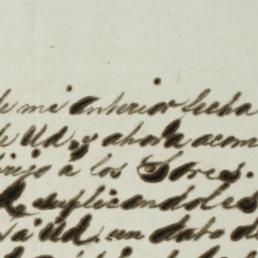 de mi anterior fecha
de Ud. y ahora acom
irijo á los Sores.
suplicandoles
á Ud. un dato d